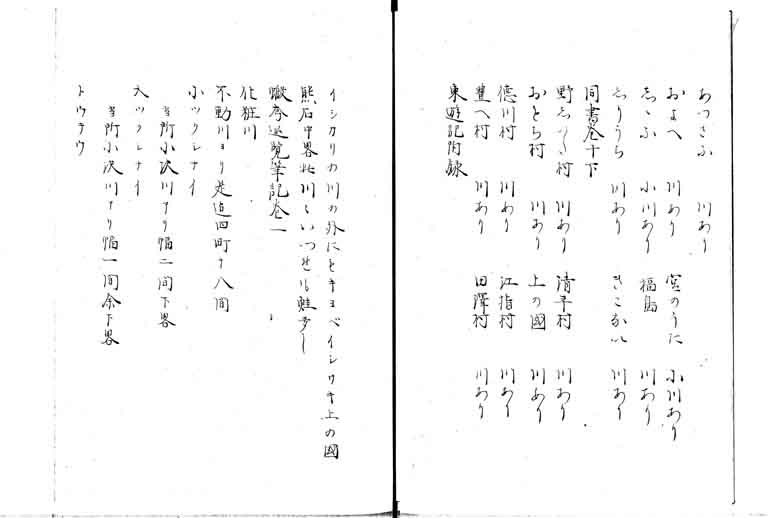 あつさふ 川あり
およへ 川あり 宮のうた 小川あり
しゝふ 小川あり 福島 川あり
しりうち 川あり きこない 川あり
同書巻十下
川あり 清平村 川あり
おとち村 川あり 上の國 川あり
徳川村 川あり 江指村 川あり
豊へ村 川あり 田澤村 川あり
東遊記附録
イシカリの川の外にトキヨベイシワキ上の國
熊石中畧此川にいつせも鮭多し
蝦夷巡覧筆記巻一
化粧川
不動川ヨリ是迠四町十八間
小ツクシナイ
當所小沢川アリ幅二間下畧
大ツクシナイ
當所小沢川アリ幅一間余下畧
トウナウ